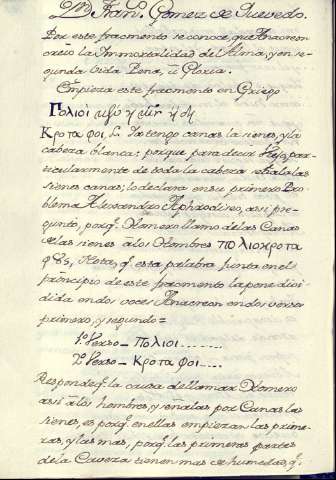 Dn. Fran.co Gomez de Quevedo.
Por este fragmento se conoce, que Anacreon
creiò la Immortalidad del Alma, y en se-
gunda Vida Pena, ù Gloria.
Empieza este fragmento en Griego
Πολιοὶ
Κροτα φοι, Yà tengo canas las sienes, y la
cabeza blanca; porque para decir Viejo par-
ticularmente de toda la cabeza señala las
sienes canas; lo declara en su primero Pro-
blema Alexandro Aphrodiseo, assi pre-
guntò, porq.e Homero llamò de las Canas
de las sienes a los Hombres πολιοκροτα
φȣς, Nota, q.e essa palabra junta en el
principio de este fragmento la pone divi-
dida en dos voces Anacreon en dos versos
primero, y segundo=
1.º Verso_ Πολιοι.......
2.º Verso_ Κροτα φοι.....
Responde q.e la causa de llamar Homero
assi à los hombres, y señalar por Canas las
sienes, es porq.e en ellas empiezan las prime-
ras, y las mas, porq.e las primeras partes
de la Caveza tienen mas de humedas, q.e